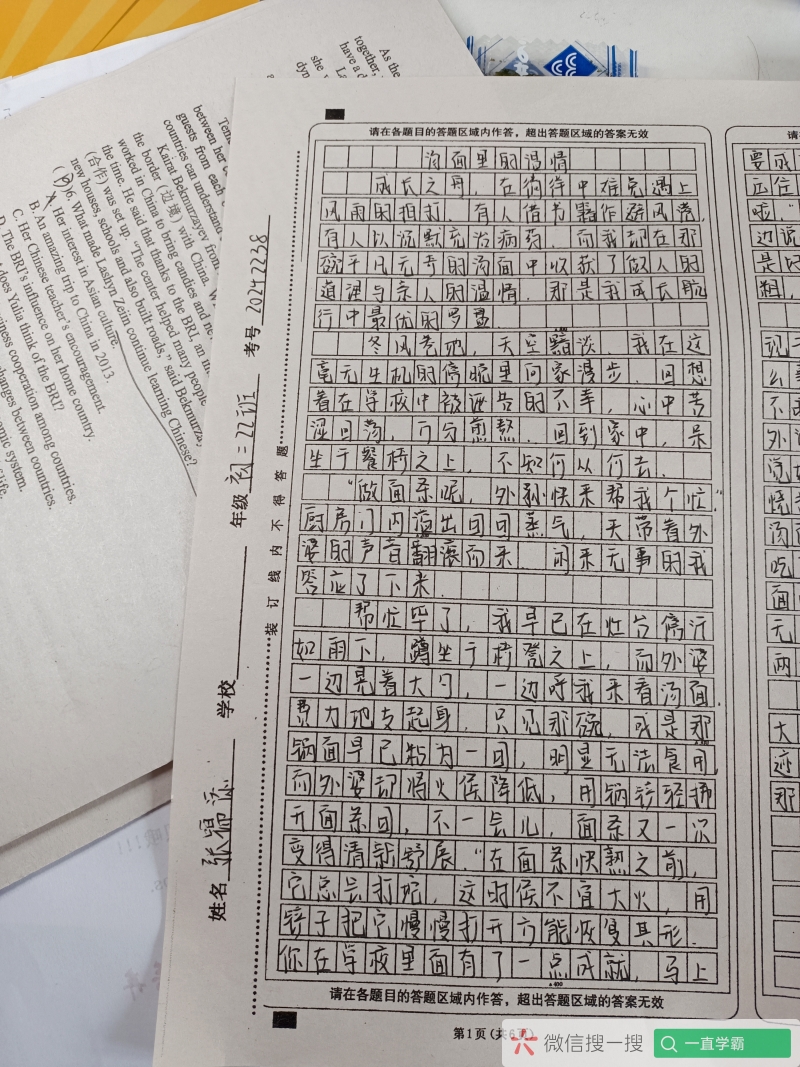 As the
together,
have a d
she
dyn
Tem
between her
guests from each
countries can understand
Kairat Bekmurzayev from
the border (边境) with China. W
worked in China to bring candies and ne
(合作) was set up. "The center helped many people
the time. He said that thanks to the BRI, an in
new houses, schools and also built roads," said Bekmurza
6. What made Lashyn Zein continue learning Chinese?
A. Her interest in Asian culture.
B. An amazing trip to China in 2013
C. Her Chinese teacher's encouragement.
D. The BRI's influence on her home country.
t does Yulia think of the BRI?
siness cooperation among countries.
changes between countries.
omic system.
life.
姓名 学校 年级 初二22班 考号 20242238
装订线内不得答题
请在各题目的答题区域内作答，超出答题区域的答案无效
汤面里的温情
成长之舟，在徜徉中难免遇上
风雨的拍打，有人借书籍作避风港，
有人以沉默充当病药，而我却在那
碗平凡无奇的汤面中收获了做人的
道理与亲人的温情，那是我成长航
行中最优的罗盘
冬风卷地，天空黯淡，我在这
毫无生机的傍晚里向家漫步，回想
着在学校中被诬告的不幸，心中苦
涩回荡，万分煎熬，回到家中，呆
坐于餐椅之上，不知何从何去.
"做面条呢，外孙快来帮我个忙"
厨房门内溢出回回蒸气，夹带着外
婆的声音翻滚而来，闲来无事的我
答应了下来
帮忙罢了，我早已在灶台傍汗
如雨下，蹲坐于椅凳之上，而外婆
一边晃着大勺，一边呼我来看汤面
费力地支起身，只见那碗，或是那
锅面早已粘为一团，明显无法食用
而外婆却将火候降低，用锅铲轻拂
开面条团，不一会儿，面条又一次
变得清新舒展."在面条快熟之前，
它总会打坨，这时候不宜大火，用
铲子把它慢慢打开方能恢复其形.
你在学校里面有了一点成就，马上
▲400
请在各题目的答题区域内作答，超出答题区域的答案无效
第1页(共6页)
请
要成
立住
啦，"
边说
是好
粗，
大
迹
那
微信搜一搜
一直学霸